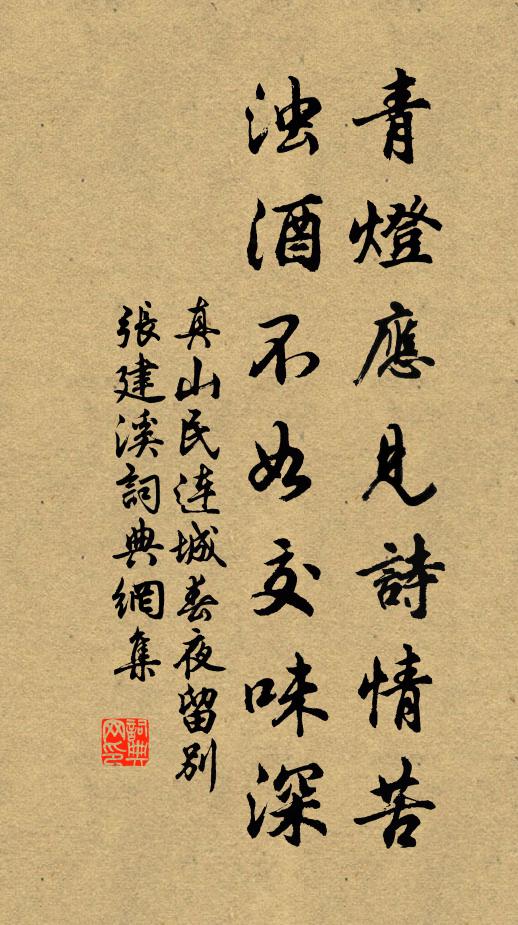 青燈應見詩情苦
浊酒不如交味深
真山民連城春夜留別
張建溪詞典網集
詞典网印